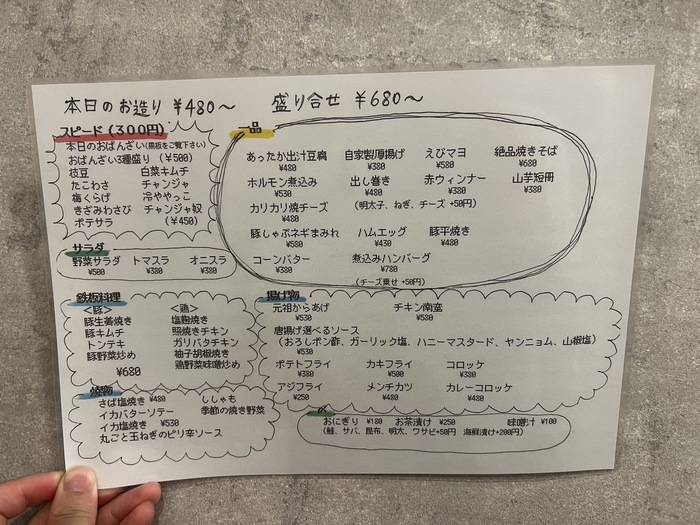 本日のお造り ¥480～
盛り合せ ¥680～
スピード(300円)
本日のおばんざい(黒板をご覧下さい)
おばんざい3種盛り (¥500)
枝豆 白菜キムチ
たこわさ チャンジャ
梅くらげ 冷ややっこ
きざみわさび チャンジャ奴
ポテサラ (¥450)
サラダ
野菜サラダ トマスラ オニスラ
¥500 ¥380 ¥380
一品
あったか出汁豆腐 自家製厚揚げ えびマヨ 絶品焼きそば
¥480 ¥380 ¥580 ¥680
ホルモン煮込み 出し巻き 赤ウィンナー 山芋短冊
¥530 ¥480 ¥380 ¥380
カリカリ焼チーズ (明太子、ねぎ、チーズ +50円)
¥480
豚しゃぶネギまみれ ハムエッグ 豚平焼き
¥580 ¥430 ¥480
コーンバター 煮込みハンバーグ
¥380 ¥780
(チーズ乗せ +50円)
鉄板料理
<豚> <鶏>
豚生姜焼き 塩麹焼き
豚キムチ 照焼きチキン
トンテキ ガリバタチキン
豚野菜炒め 柚子胡椒焼き
¥680 鶏野菜味噌炒め
焼物
さば塩焼き ¥480 ししゃも
イカバターソテー 季節の焼き野菜
イカ塩焼き ¥530
丸ごと玉ねぎのピリ辛ソース
揚げ物
元祖からあげ チキン南蛮
¥530 ¥580
唐揚げ選べるソース
(おろしポン酢、ガーリック塩、ハニーマスタード、ヤンニョム、山椒塩)
¥530
ポテトフライ カキフライ コロッケ
¥380 ¥500 ¥380
アジフライ メンチカツ カレーコロッケ
¥250 ¥480 ¥480
おにぎり ¥180 お茶漬け ¥250 味噌汁 ¥100
(鮭、サバ、昆布、明太、ワサビ+50円 海鮮漬け+200円)